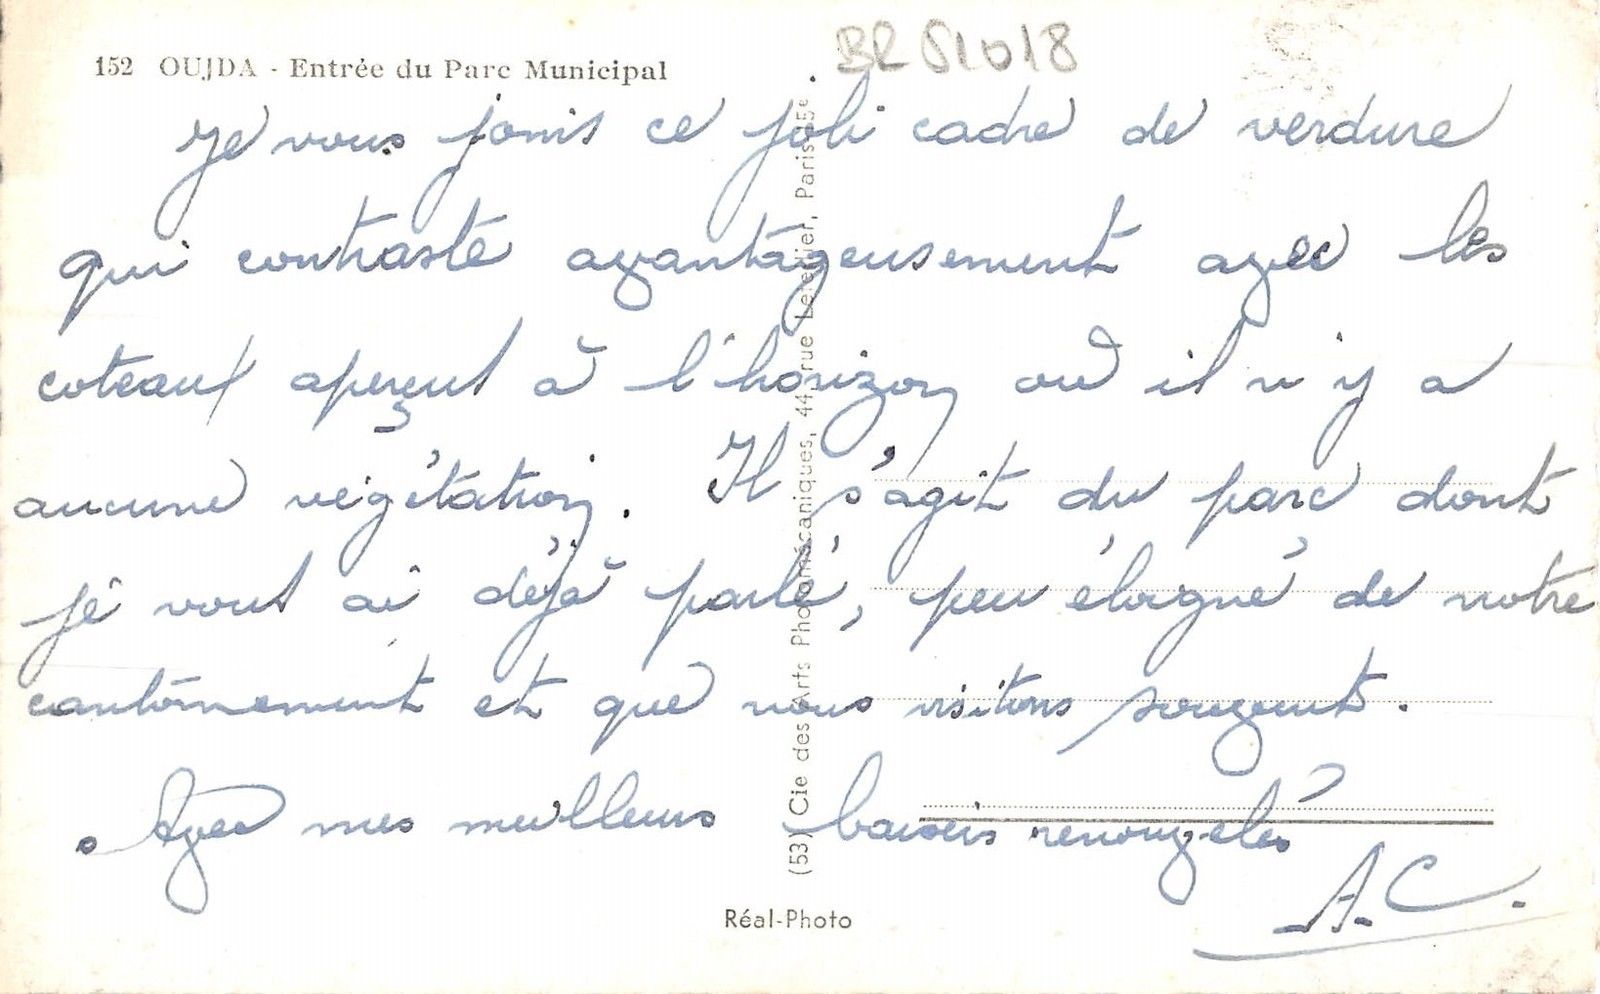 BR S1018
152 OUJDA - Entrée du Parc Municipal
Je vous joins ce joli cadre de verdure
qui contraste avantageusement avec les
coteaux aperçus à l'horizon où il n'y a
aucune végétation. Il s'agit du parc dont
je vous ai déjà parlé, peu éloigné de notre
cantonnement et que nous visitons souvent.
Avec mes meilleurs baisers renouvelés
A.C.
(53) Cie des Arts Photomécaniques, 44, rue Letellier, Paris 15e.
Réal-Photo